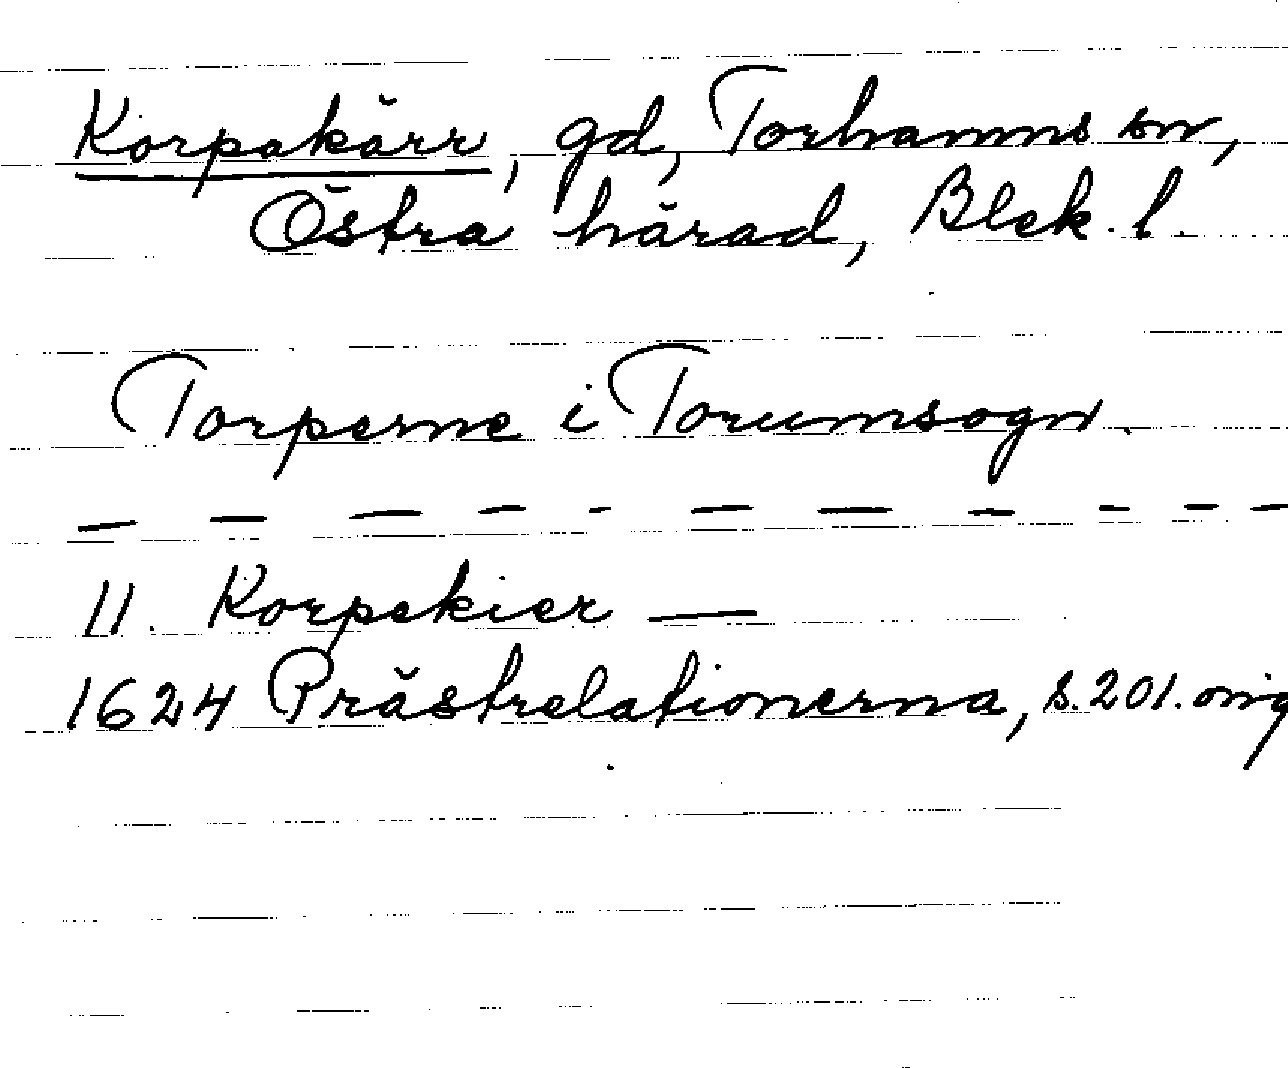 Korpakärr, gd, Torhamns sn,
Östra härad, Blek. l.
Torperne i Torumsogn.
— — — — — — — — — — —
11. Korpekier —
1624 Prästrelationerna, s. 201. orig